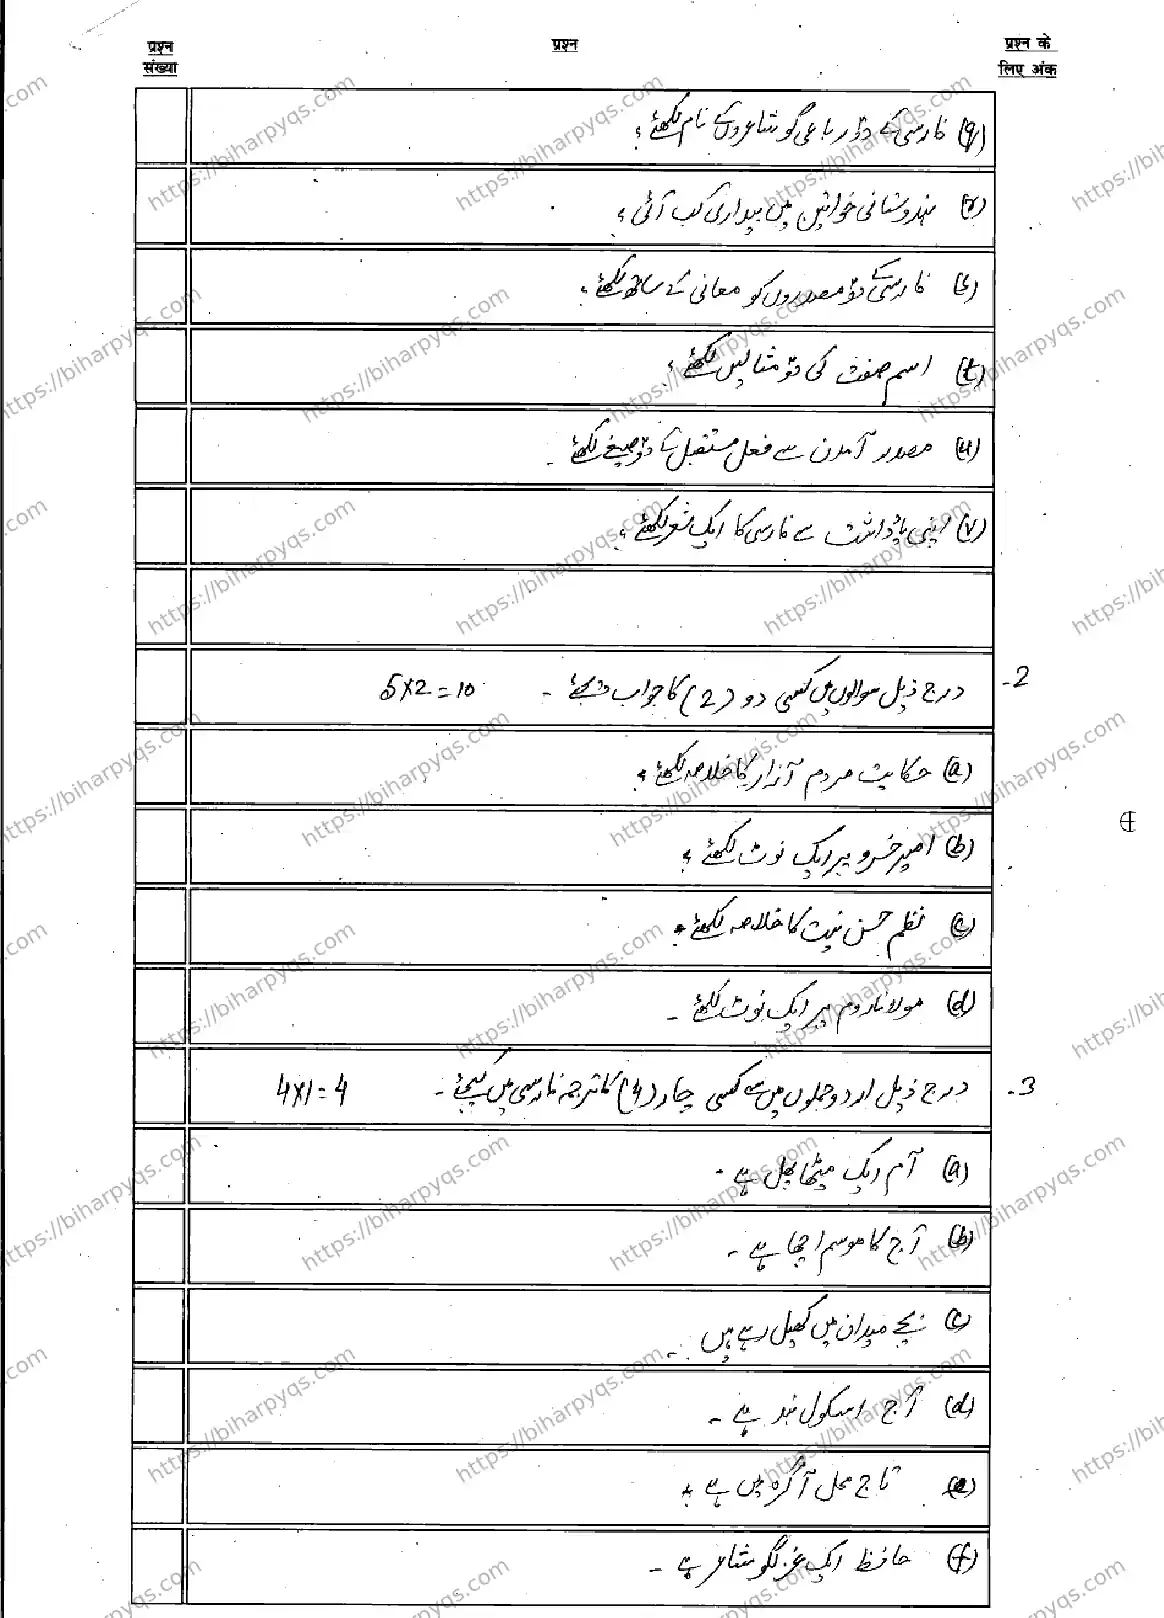 प्रश्न संख्या
प्रश्न
प्रश्न के लिए अंक
(q) فارسی کے دو رباعی گو شاعروں کے نام لکھئے؟
(r) ہندوستانی خواتین میں بیداری کب آئی؟
(s) فارسی کے دو مصدروں کو معانی کے ساتھ لکھئے۔
(t) اسم صفت کی دو مثالیں لکھئے؟
(u) مصدر آمدن سے فعل مستقبل کے دو صیغے لکھئے۔
(v) اپنی یادداشت سے فارسی کا ایک شعر لکھئے؟
2- درج ذیل سوالوں میں کسی دو (2) کا جواب دیجئے۔ 5x2=10
(a) حکایت مردم آزار کا خلاصہ لکھئے؟
(b) امیر خسرو پر ایک نوٹ لکھئے؟
(c) نظم حسن نیت کا خلاصہ لکھئے؟
(d) مولانا روم پر ایک نوٹ لکھئے۔
3- درج ذیل اردو جملوں میں سے کسی چار (4) کا ترجمہ فارسی میں کیجئے۔ 4x1=4
(a) آم ایک میٹھا پھل ہے۔
(b) آج کا موسم اچھا ہے۔
(c) بچے میدان میں کھیل رہے ہیں۔
(d) آج اسکول بند ہے۔
(e) تاج محل آگرہ میں ہے۔
(f) حافظ ایک غزلگو شاعر ہے۔
https://biharpyqs.com